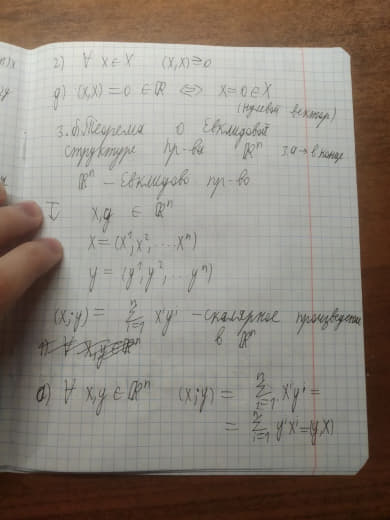 г) ∀ x ∈ X (x,x) ≥ 0
д) (x,x) = 0 ∈ ℝ ⇔ x = 0 ∈ X
(нулевой вектор)
3.б Теорема о Евклидовой
структуре пр-ва ℝⁿ 3.а → в конце
ℝⁿ – Евклидово пр-во
I x,y ∈ ℝⁿ
x = (x¹, x², ... xⁿ)
y = (y¹, y², ... yⁿ)
(x;y) = ∑ⁿᵢ₌₁ xⁱyⁱ – скалярное произведение
в ℝⁿ
а) ∀ x,y ∈ ℝⁿ (x;y) = ∑ⁿᵢ₌₁ xⁱyⁱ =
= ∑ⁿᵢ₌₁ yⁱxⁱ = (y,x)